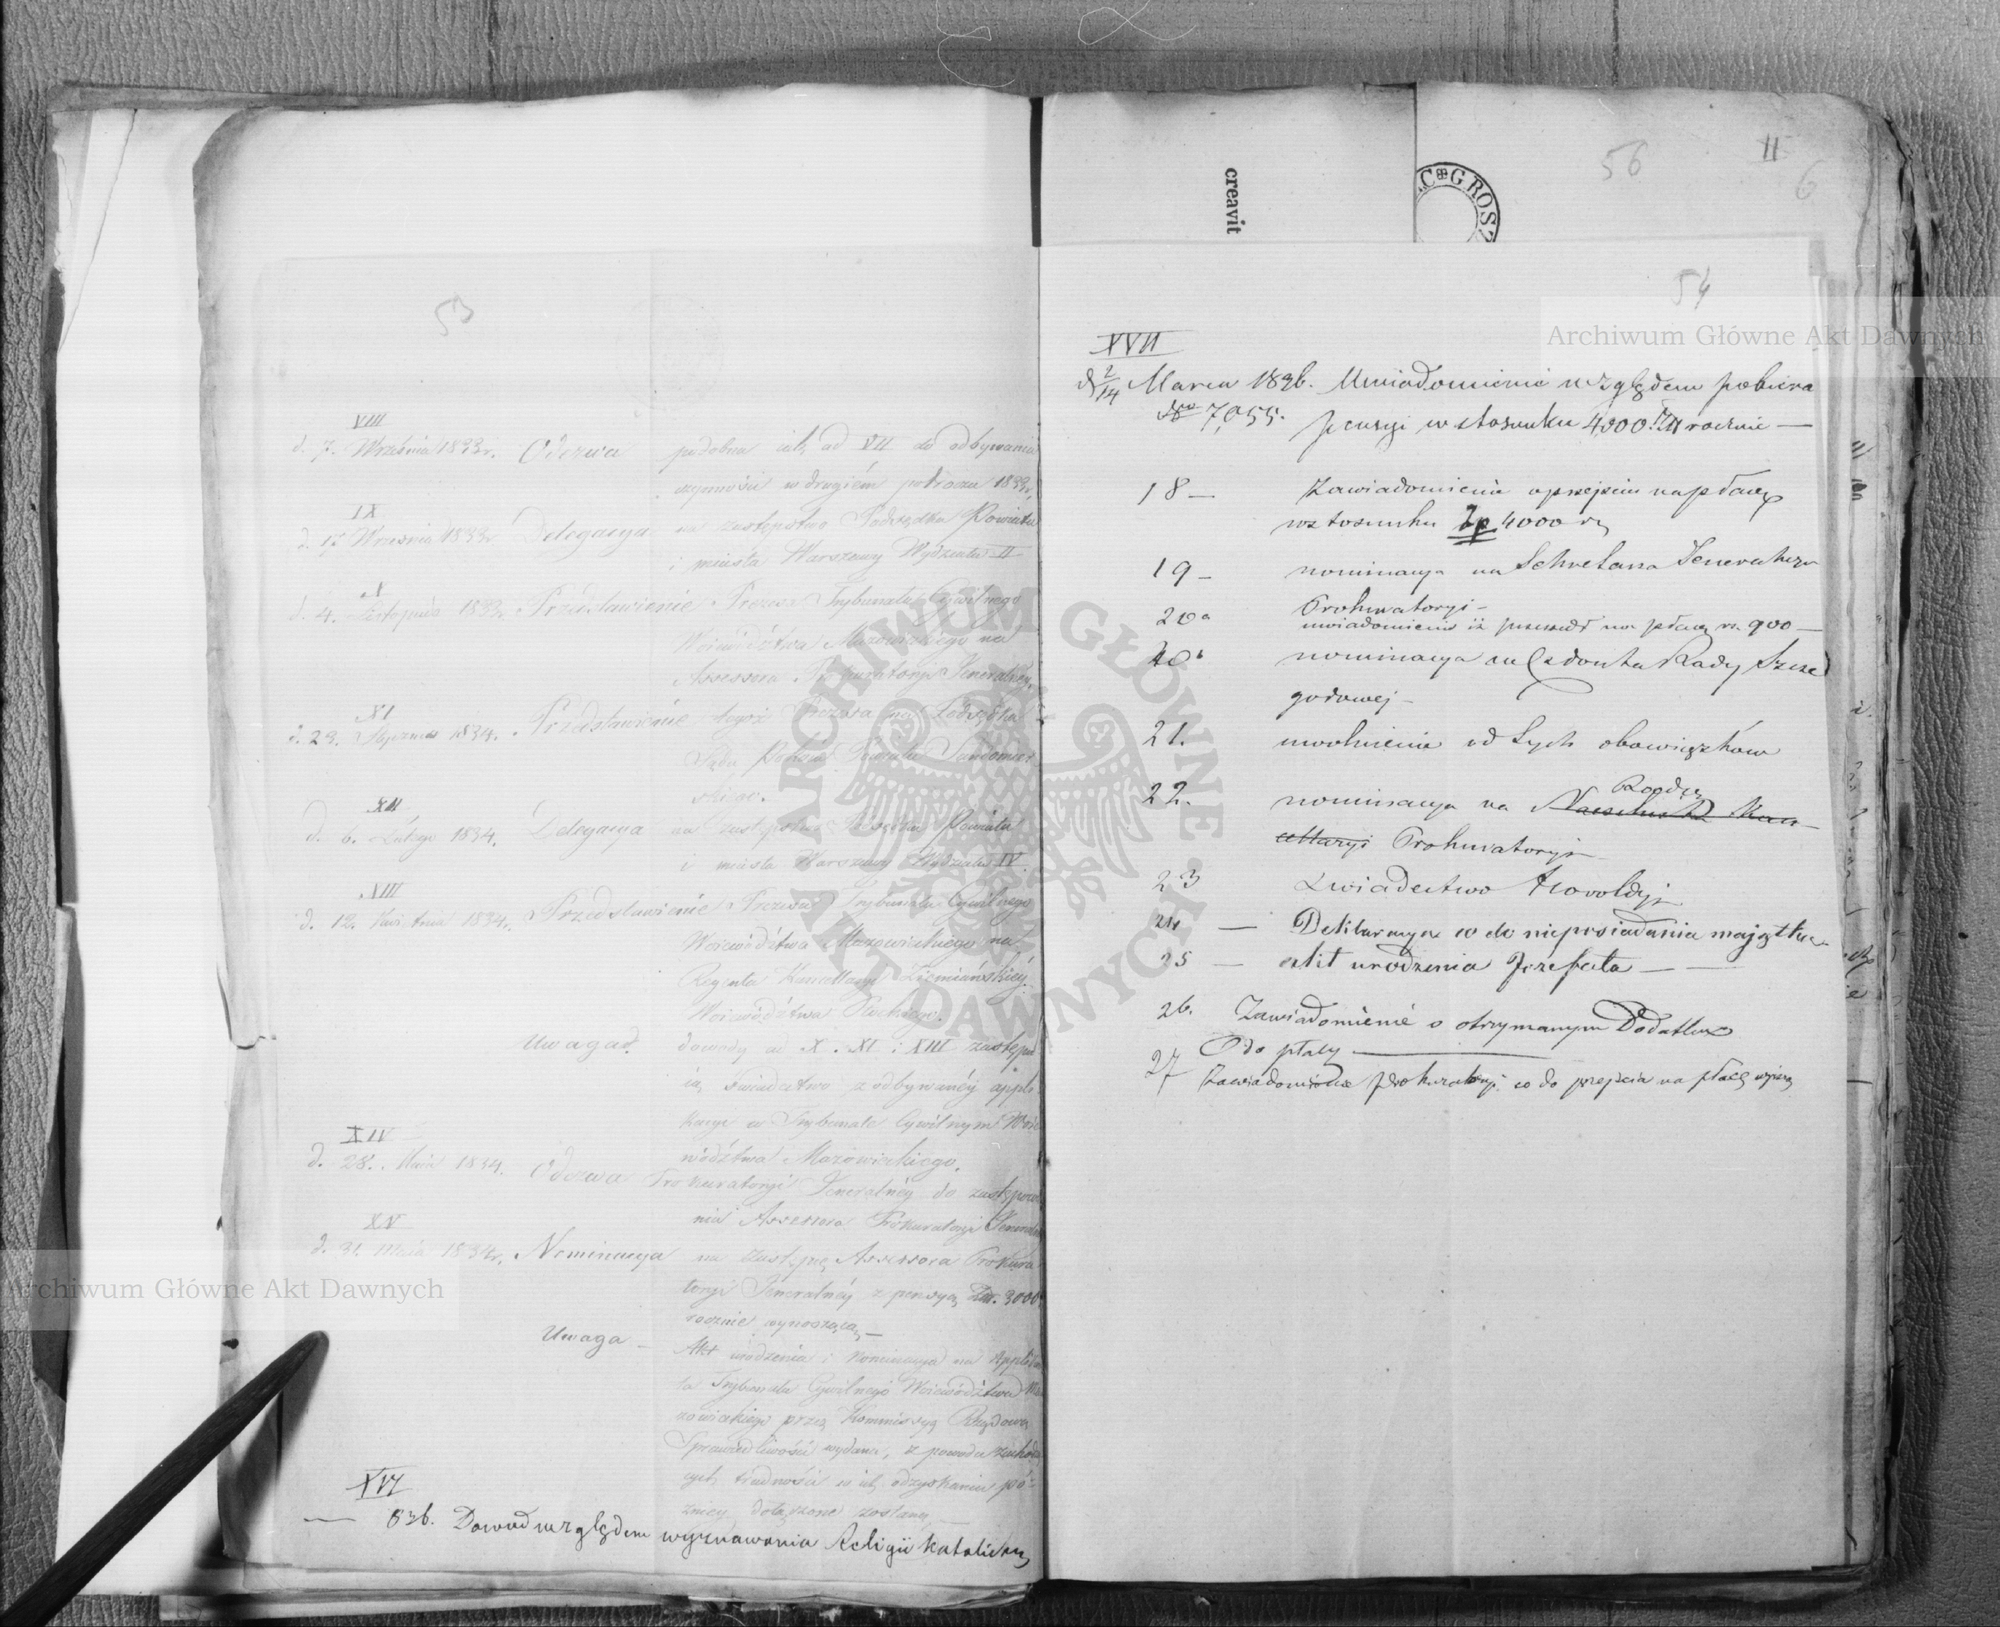 53
VIII
d. 7. Września 1833 r. Odezwa podobna jak ad VII do odbywania
czynności w drugiém półroczu 1833 r.
IX
d. 17 Września 1833 r. Delegacya na zastępstwo Podsędka Powiatu
i miasta Warszawy Wydziału II
X
d. 4. Listopada 1833 r. Przedstawienie Prezesa Trybunału Cywilnego
Województwa Mazowieckiego na
Assessora Prokuratoryi Generalnéy.
XI
d. 23. Stycznia 1834. Przedstawienie tegoż Prezesa na Podsędka
Sądu Pokoju Powiatu
skiego.
XII
d. 6. Lutego 1834. Delegacya na zastępcę Podsędka Powiatu
i miasta Warszawy Wydziału IV
XIII
d. 12. Kwietnia 1834 r. Przedstawienie Prezesa Trybunału Cywilnego
Województwa Mazowieckiego na
Regenta Kancellaryi Ziemiańskiéy
Województwa Płockiego.
Uwaga dowody ad X. XI i XIII zastępu
ią świadectwo z odbywanéy appli
kacyi w Trybunale Cywilnym Woie
wództwa Mazowieckiego.
XIV
d. 28. Maia 1834. Odezwa Prokuratoryi Generalnéy do zastępowa
nia Assessora Prokuratoryi
XV
d. 31. Maia 1834 r. Nominacya na zastępcę Assessora Prokura
toryi Generalnéy z pensyą Złp. 3000
rocznie wynoszącą —
Uwaga — Akt urodzenia i Nominacya na Applikan
ta Trybunału Cywilnego Województwa Ma
zowieckiego przez Kommissyą Rządową
Sprawiedliwości wydana, z powodu zachodzą
cych trudności w ich odzyskaniu pó-
źniéy dołączone zostaną.
XVI
— 836. Dowód względem wyznawania Religii katolickiey
creavit
C G ROSZ
56
11
6
54
XVII
d 2/14 Marca 1836. Uwiadomienie względem pobiera
No 7,055. pensyi w stosunku 4,000 Zł rocznie —
18 — Zawiadomienie o przejściu na płacę
w stosunku Zp 4000 r
19 — nominacya na Sekretarza Generalnego
Prokuratoryi —
20a uwiadomienie iż przeszedł na płacę rs. 900 —
20b nominacya na Członka Rady Szcze
gółowej —
21. uwolnienie od tych obowiązków
22. nominacya na Naczelnika Radcy Kan-
cellaryi Prokuratoryi
23 Świadectwo Heroldyi
24 — Deklaracya co do nieposiadania majątku
25 — akt urodzenia Józefata — —
26. Zawiadomienié o otrzymanym Dodatku
do płacy —
27 Zawiadomienie Prokuratoryi co do przejścia na płacę wyższą
Archiwum Główne Akt Dawnych
Archiwum Główne Akt Dawnych
ARCHIWUM GŁÓWNE AKT DAWNYCH